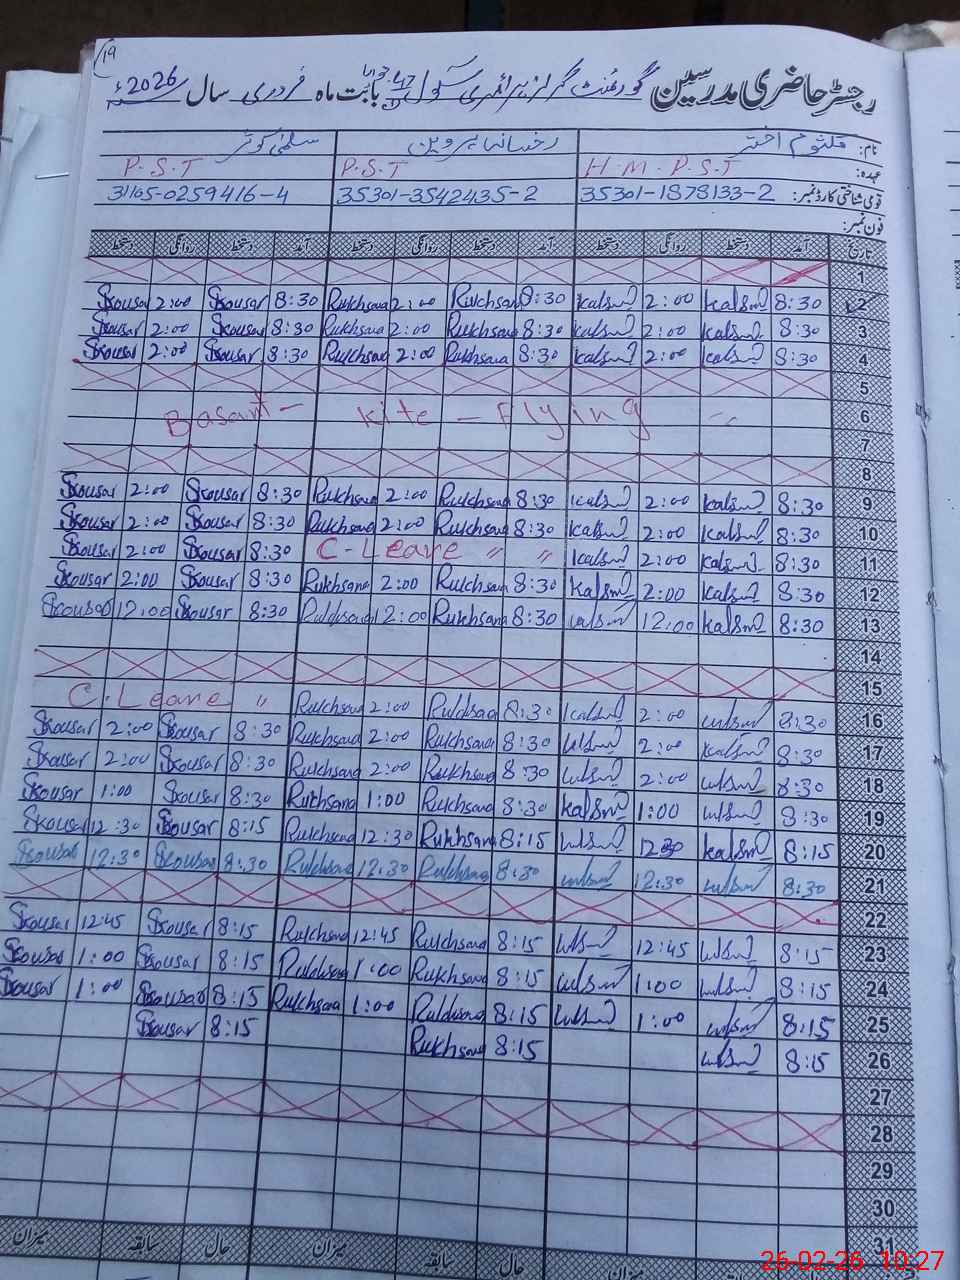 19
رجسٹر حاضری مدرسین گورنمنٹ گرلز پرائمری سکول بابت ماہ فروری سال 2026ء
نام: کلثوم اختر رخسانہ پروین سلمیٰ کوثر
عہدہ: H-M-P.S.T P.S.T P.S.T
قومی شناختی کارڈ نمبر: 35301-1878133-2 35301-3542435-2 31105-0259416-4
فون نمبر:
تاریخ آمد دستخط روانگی دستخط آمد دستخط روانگی دستخط آمد دستخط روانگی دستخط
1
Skousar 2:00 Skousar 8:30 Rukhsana 2:00 Rukhsana 8:30 kalsm 2:00 kalsm 8:30 2
Skousar 2:00 Skousar 8:30 Rukhsana 2:00 Rukhsana 8:30 kalsm 2:00 kalsm 8:30 3
Skousar 2:00 Skousar 8:30 Rukhsana 2:00 Rukhsana 8:30 kalsm 2:00 kalsm 8:30 4
5
Basant - Kite - Flying 6
7
8
Skousar 2:00 Skousar 8:30 Rukhsana 2:00 Rukhsana 8:30 kalsm 2:00 kalsm 8:30 9
Skousar 2:00 Skousar 8:30 Rukhsana 2:00 Rukhsana 8:30 kalsm 2:00 kalsm 8:30 10
Skousar 2:00 Skousar 8:30 C-Leave " " kalsm 2:00 kalsm 8:30 11
Skousar 2:00 Skousar 8:30 Rukhsana 2:00 Rukhsana 8:30 kalsm 2:00 kalsm 8:30 12
Skousar 12:00 Skousar 8:30 Rukhsana 12:00 Rukhsana 8:30 kalsm 12:00 kalsm 8:30 13
14
15
C-Leave " Rukhsana 2:00 Rukhsana 8:30 kalsm 2:00 kalsm 8:30 16
Skousar 2:00 Skousar 8:30 Rukhsana 2:00 Rukhsana 8:30 kalsm 2:00 kalsm 8:30 17
Skousar 2:00 Skousar 8:30 Rukhsana 2:00 Rukhsana 8:30 kalsm 2:00 kalsm 8:30 18
Skousar 1:00 Skousar 8:30 Rukhsana 1:00 Rukhsana 8:30 kalsm 1:00 kalsm 8:30 19
Skousar 12:30 Skousar 8:15 Rukhsana 12:30 Rukhsana 8:15 kalsm 1230 kalsm 8:15 20
Skousar 12:30 Skousar 8:30 Rukhsana 12:30 Rukhsana 8:30 kalsm 12:30 kalsm 8:30 21
22
Skousar 12:45 Skousar 8:15 Rukhsana 12:45 Rukhsana 8:15 kalsm 12:45 kalsm 8:15 23
Skousar 1:00 Skousar 8:15 Rukhsana 1:00 Rukhsana 8:15 kalsm 1:00 kalsm 8:15 24
Skousar 1:00 Skousar 8:15 Rukhsana 1:00 Rukhsana 8:15 kalsm 1:00 kalsm 8:15 25
Skousar 8:15 Rukhsana 8:15 kalsm 8:15 26
27
28
29
30
31
حال سابقہ میزان حال سابقہ میزان
26-02-26 10:27